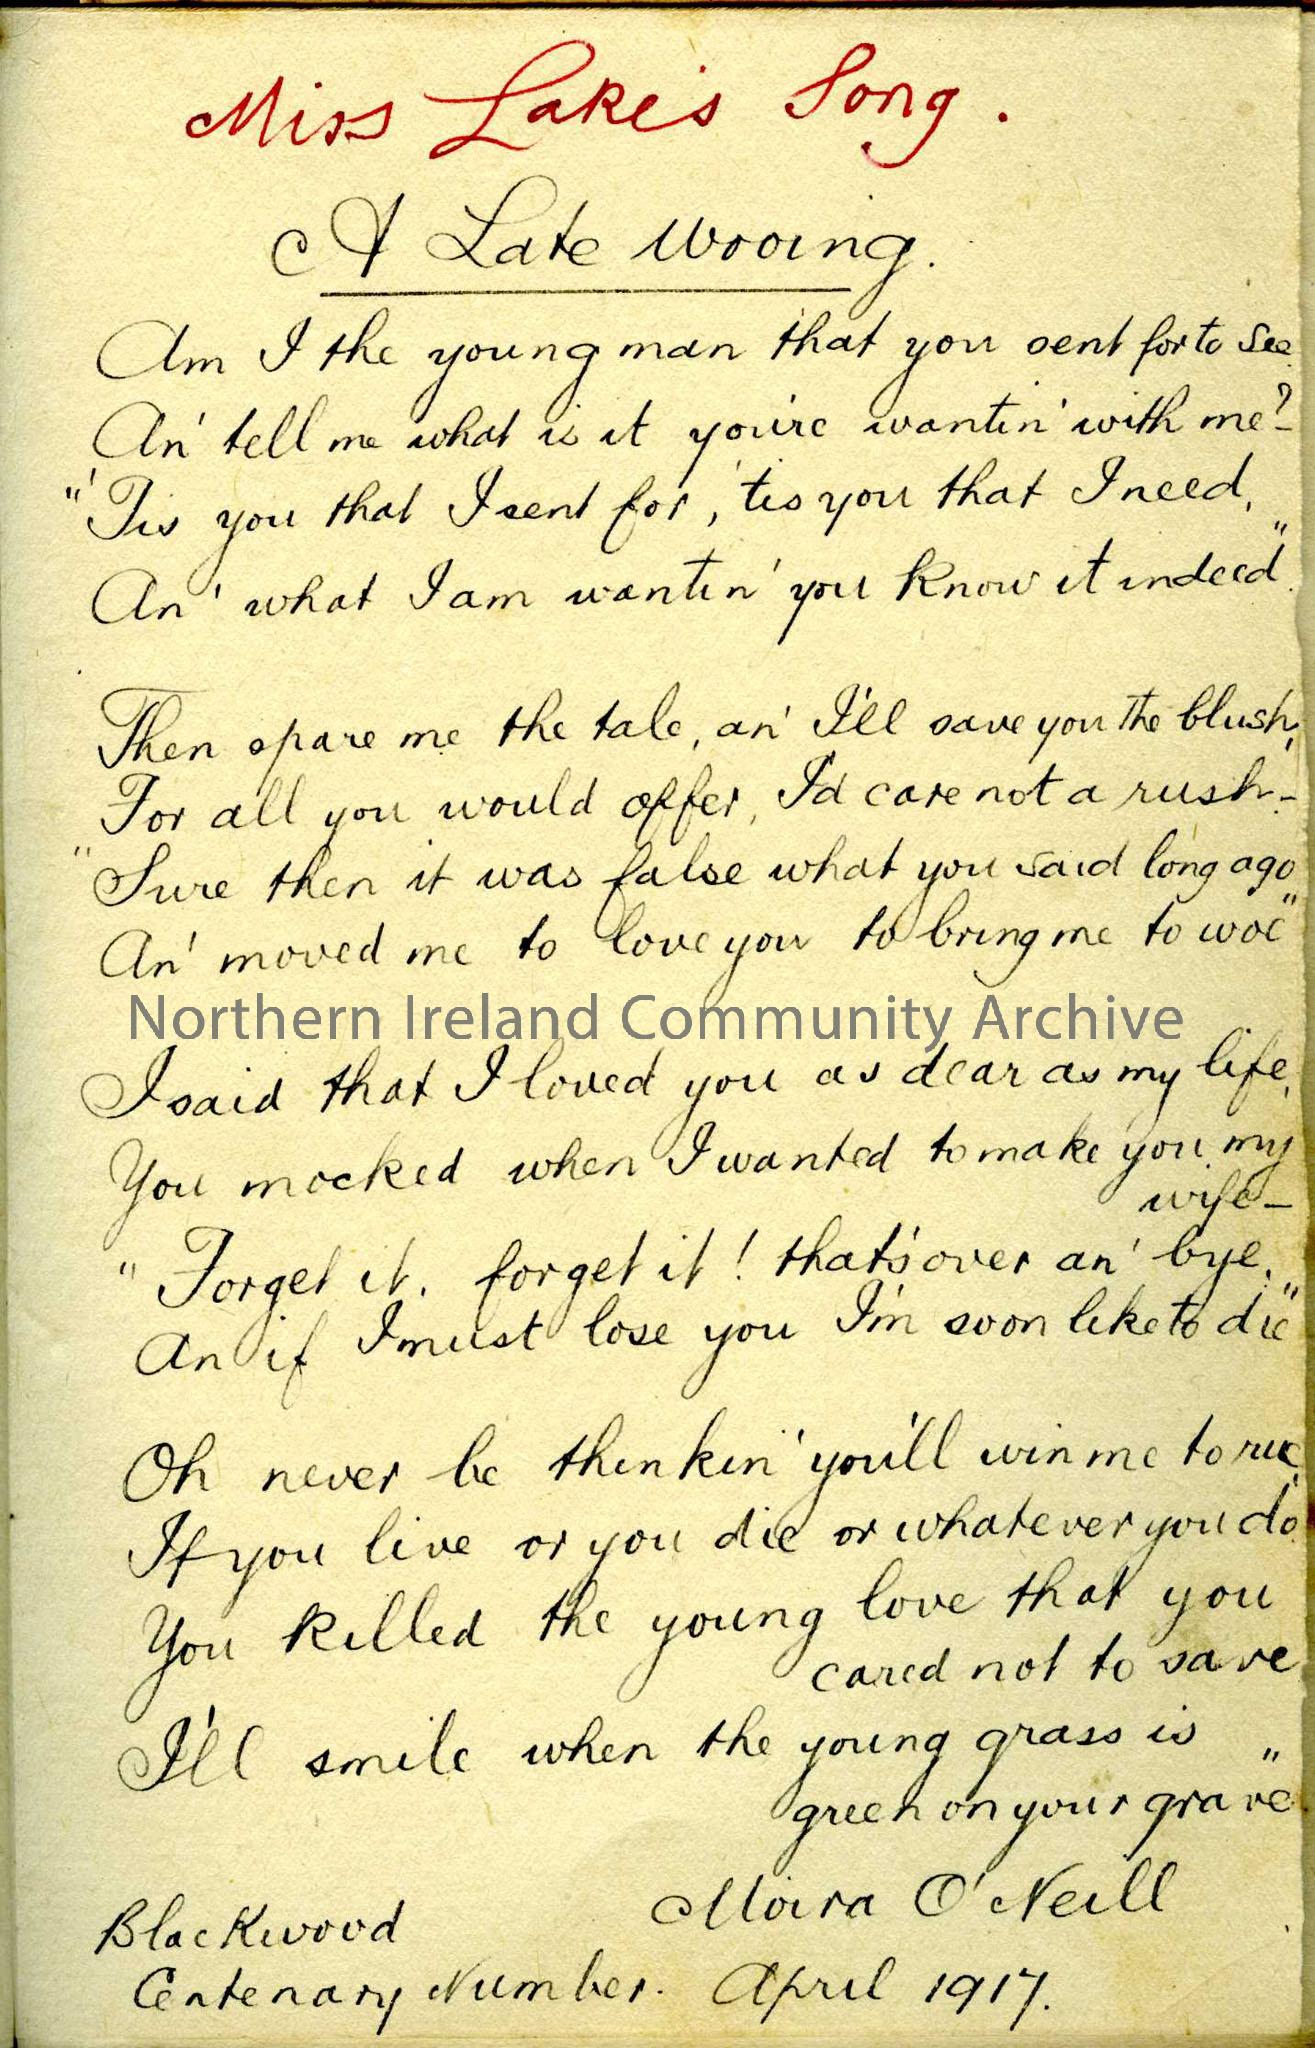 Miss Lake's Song.
A Late Wooing.
Am I the young man that you sent for to see
An' tell me what is it you're wantin' with me?-
"'Tis you that I sent for, 'tis you that I need,
An' what I am wantin' you know it indeed."
Then spare me the tale, an' I'll save you the blush,
For all you would offer, I'd care not a rush-
"Sure then it was false what you said long ago
An' moved me to love you to bring me to woe"
Northern Ireland Community Archive
I said that I loved you as dear as my life,
You mocked when I wanted to make you my
wife-
"Forget it, forget it! that's over an' bye,
An if I must lose you I'm soon like to die"
Oh never be thinkin' you'll win me to rue,
If you live or you die or whatever you do
You killed the young love that you
cared not to save
I'll smile when the young grass is
green on your grave"
Moira O'Neill
Blackwood
Centenary Number. April 1917.